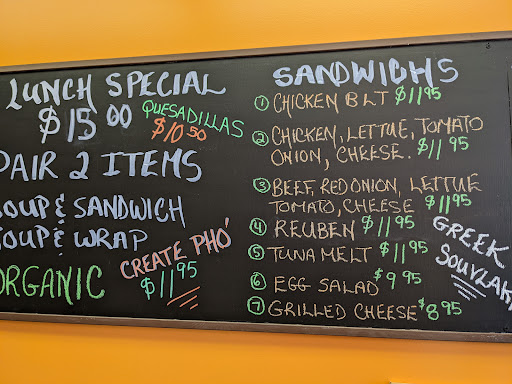 LUNCH SPECIAL
$15.00
QUESADILLAS
$10.50
PAIR 2 ITEMS
SOUP & SANDWICH
SOUP & WRAP
CREATE PHO'
$11.95
ORGANIC
SANDWICHS
① CHICKEN BLT $11.95
② CHICKEN, LETTUE, TOMATO
ONION, CHEESE. $11.95
③ BEEF, RED ONION, LETTUE
TOMATO, CHEESE $11.95
④ REUBEN $11.95
⑤ TUNA MELT $11.95
⑥ EGG SALAD $9.95
⑦ GRILLED CHEESE $8.95
GREEK
SOUVLAKI